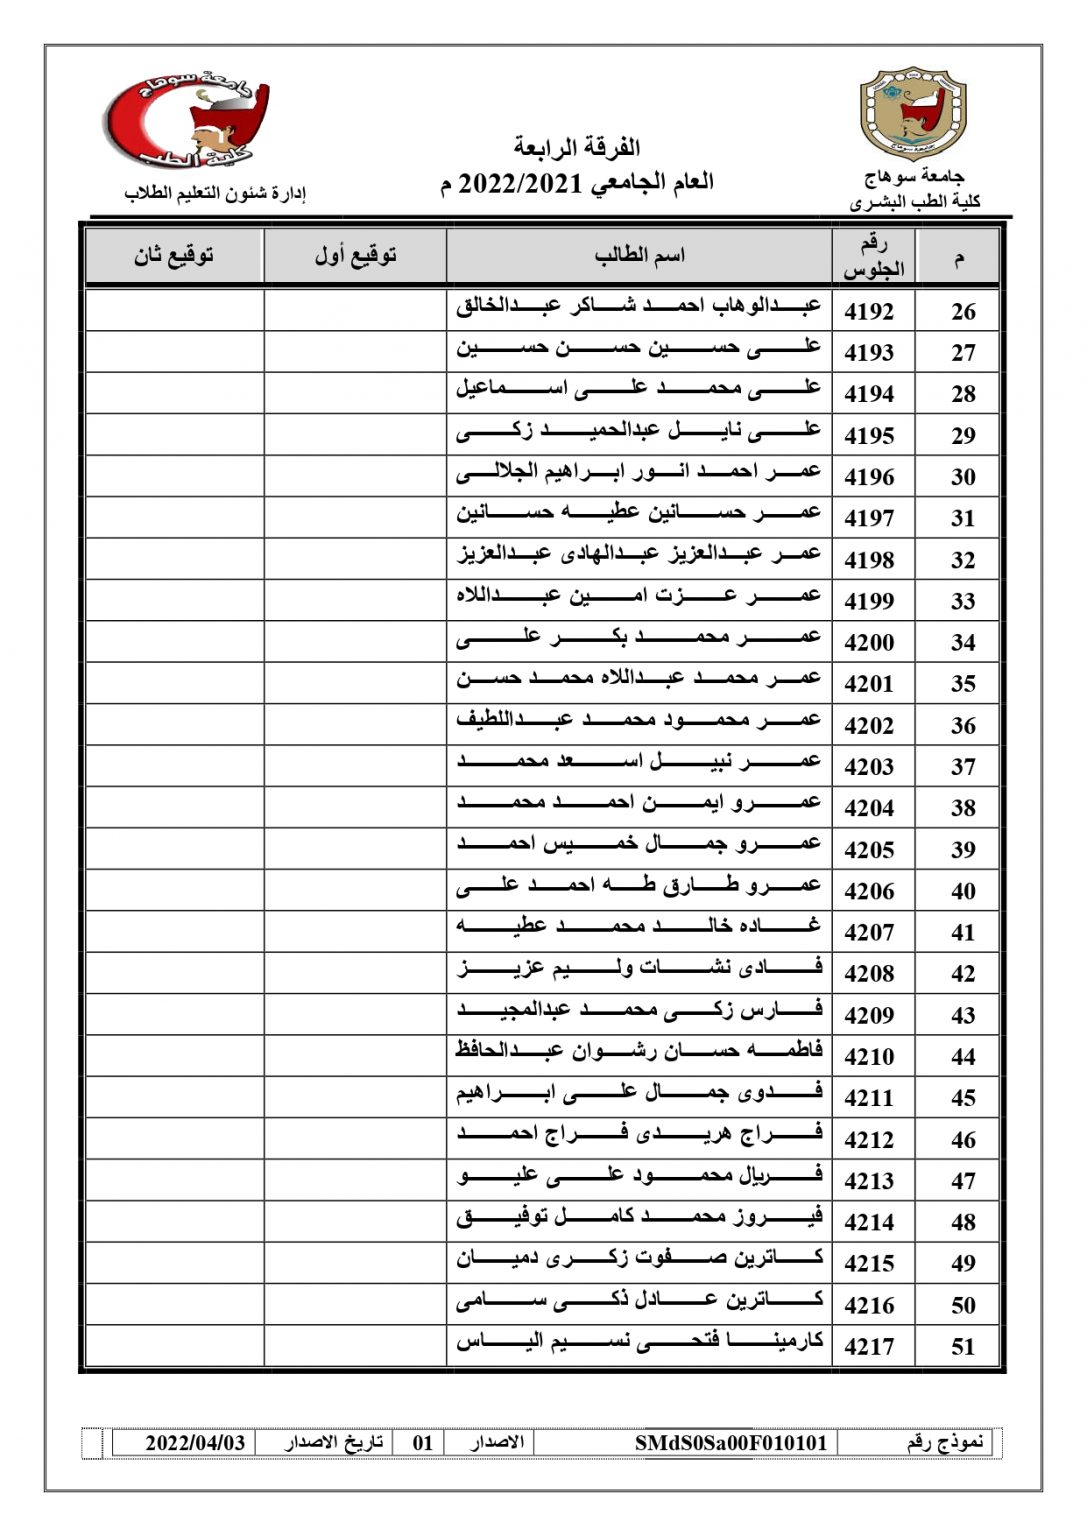 جامعة سوهاج
كلية الطب
إدارة شئون التعليم الطلاب
الفرقة الرابعة
العام الجامعي 2022/2021 م
جامعة سوهاج
جامعة سوهاج
كلية الطب البشرى
م رقم الجلوس اسم الطالب توقيع أول توقيع ثان
26 4192 عبدالوهاب احمد شاكر عبدالخالق
27 4193 على حسين حسن حسين
28 4194 على محمد على اسماعيل
29 4195 على نايل عبدالحميد زكى
30 4196 عمر احمد انور ابراهيم الجلالى
31 4197 عمر حسانين عطيه حسانين
32 4198 عمر عبدالعزيز عبدالهادى عبدالعزيز
33 4199 عمر عزت امين عبداللاه
34 4200 عمر محمد بكر على
35 4201 عمر محمد عبداللاه محمد حسن
36 4202 عمر محمود محمد عبداللطيف
37 4203 عمر نبيل اسعد محمد
38 4204 عمرو ايمن احمد محمد
39 4205 عمرو جمال خميس احمد
40 4206 عمرو طارق طه احمد على
41 4207 غاده خالد محمد عطيه
42 4208 فادى نشات وليم عزيز
43 4209 فارس زكى محمد عبدالمجيد
44 4210 فاطمه حسان رشوان عبدالحافظ
45 4211 فدوى جمال على ابراهيم
46 4212 فراج هريدى فراج احمد
47 4213 فريال محمود على عليو
48 4214 فيروز محمد كامل توفيق
49 4215 كاترين صفوت زكرى دميان
50 4216 كاترين عادل ذكى سامى
51 4217 كارمينا فتحى نسيم الياس
نموذج رقم SMdS0Sa00F010101 الاصدار 01 تاريخ الاصدار 2022/04/03